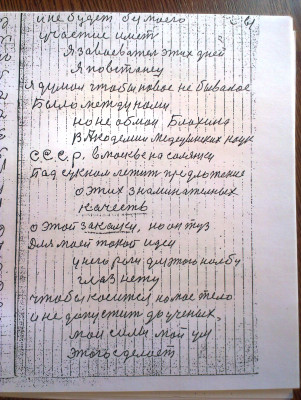 и не будет бу моего
участие имет
Я завоеватель этих дней
Я повстану
я думал чтобы новое не бывалое
Было между нами
но не обман Блохина
В Академии Медецинских наук
С.С.С.р. в москве на солянки
Под сукном лежит предложение
о этих знаминательных
качесть
о этой закалки, но он туз
Для моей такой идеи
у него рога для этого на лбу
глаз нету
чтобы косится на мое тело
и не допустит до ученых
мои силы мой ум
этого сделает